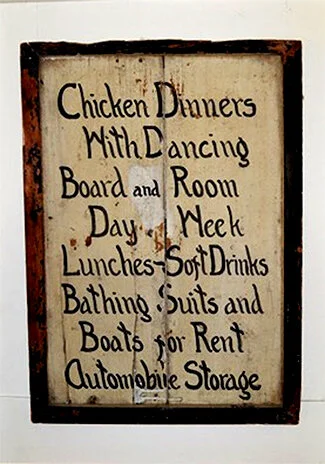 Chicken Dinners
With Dancing
Board and Room
Day Week
Lunches-Soft Drinks
Bathing Suits and
Boats for Rent
Automobile Storage